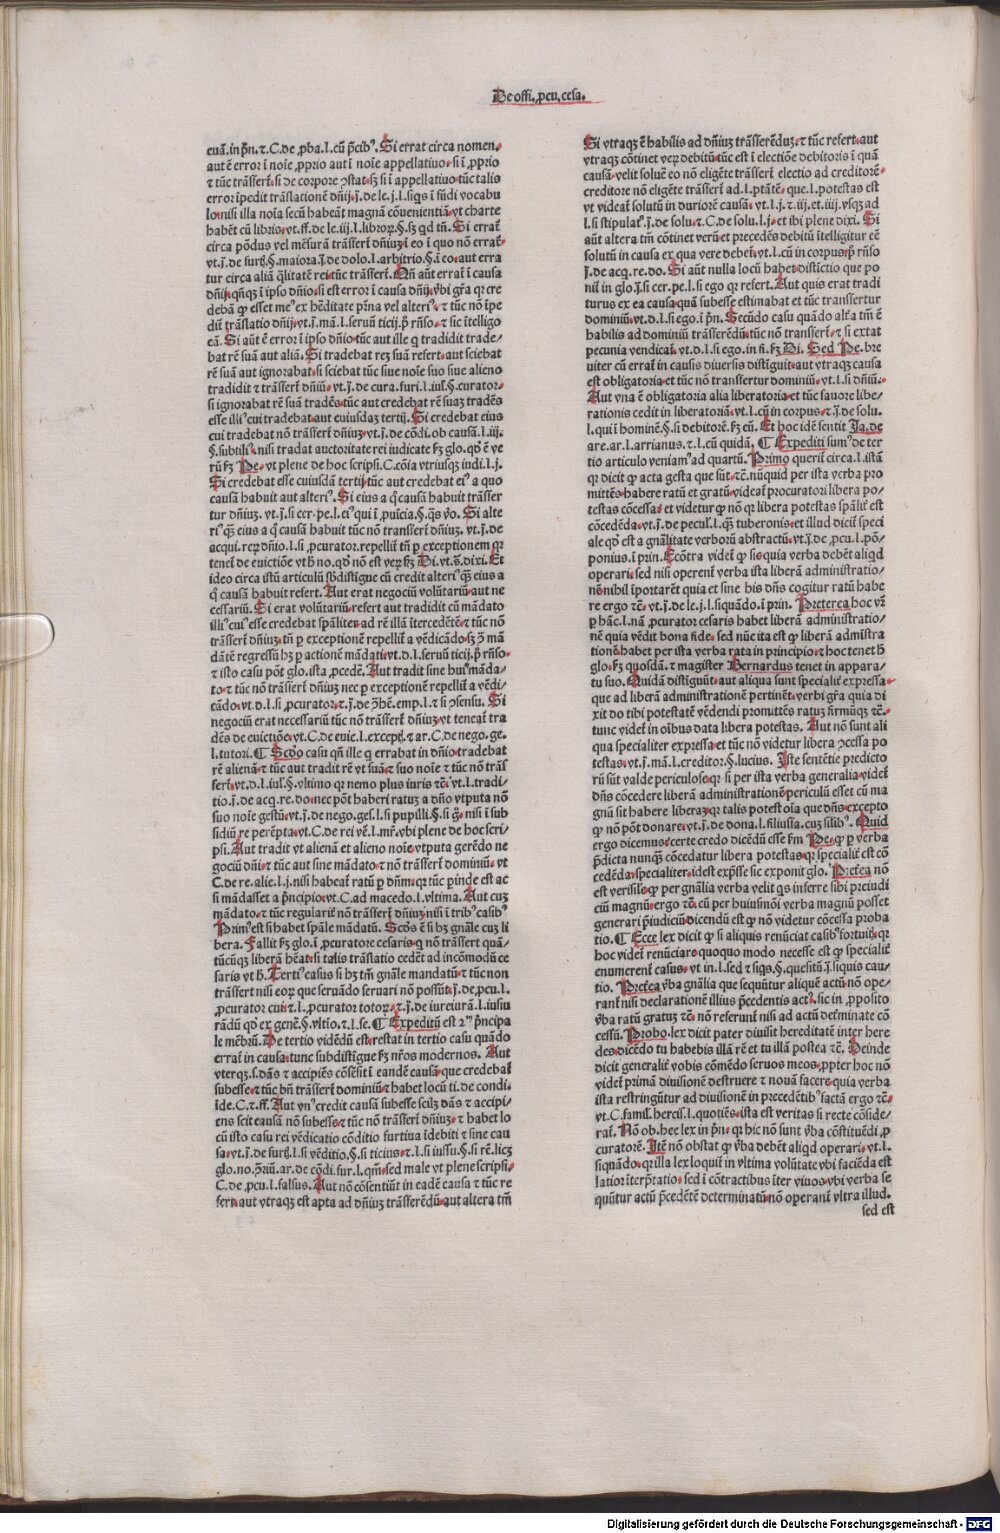 De offi. ꝓcu. cesa.
euā. in pͥn. ⁊. C. de ꝓba. l. cū p̄cibꝰ. Si errat circa nomen.
aut ē error ī noīe ꝓprio aut ī noīe appellatiuo. si ī ꝓprio
⁊ tūc trāsfert̄. si de corpore ꝯstat. sꝫ si ī appellatiuo. tūc talis
error īpedit trāslationē dn̄ij. ꝭ. de le. j. l. siqs ī fūdi vocabu
lo. nisi illa noīa secū habeāt magnā cōuenientiā. vt charte
habēt cū libris. vt. ff. de le. iij. l. libroꝝ. §. sꝫ qd tn̄. Si errat̄
circa pōdus vel mēsurā trāsfert̄ dn̄iuꝫ. ī eo ī quo nō errat̄.
vt. ꝭ. de furt̄. §. maiora. ꝭ. de dolo. l. arbitrio. §. ā eo. aut erra
tur circa aliā q̄litatē rei. tūc trāsfert̄. Qn̄ aūt errat̄ ī causa
dn̄ij. qn̄qꝫ ī ipso dn̄io. si est error ī causa dn̄ij. v̄bi gr̄a qꝛ cre
debā ꝙ esset meꝰ ex hēditate pr̄na vel alteriꝰ. ⁊ tūc nō īpe
dit̄ trāslatio dn̄ij. vt. ꝭ. mā. l. seruū ticij. p̄ rn̄so. ⁊ sic ītelligo
eā. Si aūt ē error ī ipso dn̄io. tūc aut ille q tradidit trade-
bat rē suā aut aliā. Si tradebat reꝫ suā refert. aut sciebat
rē suā aut ignorabat. si sciebat tūc siue noīe suo siue alieno
tradidit ⁊ trāsfert̄ dn̄iū. vt. ꝭ. de cura. furi. l. iulꝰ. §. curator.
si ignorabat rē suā tradēs. tūc aut credebat rē suaꝫ tradēs
esse illiꝰ cui tradebat. aut cuiusdaꝫ tertij. Si credebat eius
cui tradebat nō trāsfert̄ dn̄iuꝫ. vt. ꝭ. de cōdi. ob causā. l. iij.
§. subtiliꝰ. nisi tradat auctoritate rei iudicate. fꝫ glo. qd̄ ē ve
rū fꝫ Pe. vt plene de hoc scripsi. C. cōia vtriusqꝫ iudi. l. j.
Si credebat esse cuiusdā tertij. tūc aut credebat eiꝰ a quo
causā habuit aut alteriꝰ. Si eius a q̄ causā habuit trāsfer
tur dn̄iuꝫ. vt. ꝭ. si cer. pe. l. eiꝰ qui ī ꝓuīcia. §. qs v̄o. Si alte
riꝰ qꝫ eius a q̄ causā habuit tūc nō transfert̄ dn̄iuꝫ. vt. ꝭ. de
acqui. reꝝ dn̄io. l. si ꝓcurator. repellit̄ tn̄ ꝑ exceptionem qꝛ
tenet̄ de euictiōe. vt h̄ no. qd̄ nō est veꝝ fꝫ Di. vt. s̄. dixi. Et
ideo circa istū articulū sb̄distīgue cū credit alteriꝰ qꝫ eius a
q̄ causā habuit refert. Aut erat negociū volūtariū. aut ne
cessariū. Si erat volūtariū. refert aut tradidit cū mādato
illiꝰ cuiꝰ esse credebat sp̄aliter ad rē illā ītercedēte. ⁊ tūc nō
trāsfert̄ dn̄iuꝫ. tn̄ ꝑ exceptionē repellit̄ a vēdicādo. sꝫ ꝯ mā
dātē regressū hꝫ ꝑ actionē mādati. vt. d. l. seruū ticij. p̄ rn̄so.
⁊ isto casu pōt glo. ista ꝓcedē. Aut tradit sine huiꝰ māda-
to. ⁊ tūc nō trāsfert̄ dn̄iuꝫ nec ꝑ exceptionē repellit̄ a vēdi-
cādo. vt. d. l. si ꝓcurator. ⁊. ꝭ. de ꝯhē. emp. l. ⁊ si ꝯsensu. Si
negociū erat necessariū tūc nō trāsfert̄ dn̄iuꝫ. vt teneat̄ tra
dēs de euictiōe. vt. C. de euic. l. exceptꝭ. ⁊ ar. C. de nego. ge.
l. tutori. ¶ Scd̄o casu qn̄ ille q errabat in dn̄io. tradebat
rē alienā. ⁊ tūc aut tradit rē vt suā. ⁊ suo noīe ⁊ tūc nō trās
fert̄. vt. d. l. iulꝰ. §. vltimo qꝛ nemo plus iuris ⁊c̄. vt. l. tradi-
tio. ꝭ. de acq. re. do. nec pōt haberi ratuꝫ a dn̄o vtputa nō
suo noīe gestū. vt. ꝭ. de nego. ges. l. si pupilli. §. si q̄. nisi ī sub
sidiū re perēpta. vt. C. de rei vē. l. mr̄. vbi plene de hoc scri-
psi. Aut tradit vt alienā et alieno noīe. vtputa gerēdo ne
gociū dn̄i. ⁊ tūc aut sine mādato. ⁊ nō trāsfert̄ dominiū. vt
C. de re. alie. l. j. nisi habeat̄ ratū ꝑ dn̄m. qꝛ tūc ꝑinde est ac
si mādasset a p̄ncipio. vt. C. ad macedo. l. vltima. Aut cuꝫ
mādato. ⁊ tūc regularit̄ nō trāsfert̄ dn̄iuꝫ nisi ī tribꝰ casibꝰ
Primꝰ est si habet sp̄ale mādatū. Scd̄s ē si hꝫ gn̄ale cuꝫ li
bera. Fallit fꝫ glo. ī ꝓcuratore cesaris. q nō trāsfert quā-
tūcūqꝫ liberā hēat. si talis trāslatio cedēt ad incōmodū ce
saris vt h̄. Tertiꝰ casus si hꝫ tm̄ gn̄ale mandatū. ⁊ tūc non
trāsfert nisi eoꝝ que seruādo seruari nō possūt. ꝭ. de ꝓcu. l.
ꝓcurator cui. ⁊. l. ꝓcurator totoꝝ. ⁊. ꝭ. de iureiurā. l. iusiu
rādū qd̄ ex genē. §. vltio. ⁊. l. se. ¶ Expeditū est 2ᵐ p̄ncipa
le mēbrū. De tertio vidēdū est. restat in tertio casu quādo
errat̄ in causa. tunc subdistīgue fꝫ nr̄os modernos. Aut
vterqꝫ. s. dās ⁊ accipiēs cōsēsit ī eandē causā. que credebat̄
subesse. ⁊ tūc bn̄ trāsfert̄ dominiū. ⁊ habet locū ti. de condi.
īde. C. ⁊. ff. Aut vnꝰ credit causā subesse scilꝫ dās ⁊ accipi-
ens scit causā nō subesse. ⁊ tūc nō trāsfert̄ dn̄iuꝫ. ⁊ habet lo
cū isto casu rei vēdicatio cōditio furtiua īdebiti ⁊ sine cau
sa. vt. ꝭ. de furt̄. l. si vēditio. §. si ticius. ⁊. l. si iussu. §. si rē. licꝫ
glo. no. ꝯriū. ar. de cōdi. fur. l. qm̄. sed male vt plene scripsi.
C. de ꝓcu. l. falsus. Aut nō cōsentiūt in eadē causa ⁊ tūc re
fert. aut vtraqꝫ est apta ad dn̄iuꝫ trāsferēdū. aut altera tm̄
Si vtraqꝫ ē habilis ad dn̄iuꝫ trāsferēduꝫ. ⁊ tūc refert. aut
vtraqꝫ cōtinet veꝝ debitū. tūc est ī electiōe debitoris ī quā
causā velit soluē eo nō eligēte trāsfert̄ electio ad creditorē.
creditore nō eligēte trāsfert̄ ad. l. ptātē. que. l. potestas est
vt videat̄ solutū in duriorē causā. vt. l. j. ⁊. iij. et. iiij. vsqꝫ ad
l. si stipulatꝰ. ꝭ. de solu. ⁊. C. de solu. l. j. et ibi plene dixi. Si
aūt altera tm̄ cōtinet verū et precedēs debitū ītelligitur eē
solutū in causa ex qua vere debet̄. vt. l. cū in corpus. p̄ rn̄so
ꝭ. de acq. re. do. Si aūt nulla locū habet distīctio que po
nit̄ in glo. ꝭ. si cer. pe. l. si ego qꝛ refert. Aut quis erat tradi
turus ex ea causa quā subesse estimabat et tūc transfertur
dominiū. vt. d. l. si ego. ī pͥn. Secūdo casu quādo alt̄a tm̄ ē
habilis ad dominiū trāsferēdū. tūc nō transfert̄. ⁊ si extat
pecunia vendicat̄. vt. d. l. si ego. in fi. fꝫ Di. Sed Pe. bre
uiter cū errat̄ in causis diuersis distīguit. aut vtraqꝫ causa
est obligatoria. et tūc nō transfertur dominiū. vt. l. si dn̄iū.
Aut vna ē obligatoria alia liberatoria. et tūc fauore libe-
rationis cedit in liberatoriā. vt. l. cū in corpus. ⁊. ꝭ. de solu.
l. qui ī hominē. §. si debitorē. fꝫ eū. Et hoc idē sentit Ja. de
are. ar. l. arrianus. ⁊. l. cū quidā. ¶ Expediti sumꝰ de ter
tio articulo veniamꝰ ad quartū. Primo querit̄ circa. l. istā
qꝛ dicit ꝙ acta gesta que sūt. ⁊c̄. nūquid per ista verba pro
mittēs habere ratū et gratū. videat̄ procuratori libera po-
testas cōcessa. et videtur ꝙ nō qꝛ libera potestas sp̄alit̄ est
cōcedēda. vt. ꝭ. de peculꝭ. l. qꝫ tuberonis. et illud dicit̄ speci
ale qd̄ est a gn̄alitate verborū abstractū. vt. ꝭ. de ꝓcu. l. pō-
ponius. ī prin. Ecōtra videt̄ ꝙ sic. quia verba debēt aliqd
operari. sed nisi operent̄ verba ista liberā administratio-
nē. nihil īportarēt quia et sine his dn̄s cogitur ratū habe
re ergo ⁊c̄. vt. ꝭ. de le. j. l. siquādo. ī prin. Preterea hoc vr̄
ꝑ hāc. l. nā ꝓcurator cesaris habet liberā administratio-
nē quia vēdit bona fide. sed nūc ita est ꝙ liberā admīstra
tionē habet per ista verba rata in principio. ⁊ hoc tenet h̄
glo. fꝫ quosdā. ⁊ magister Bernardus tenet in appara-
tu suo. Quidā distīguūt. aut aliqua sunt specialit̄ expressa.
que ad liberā administrationē pertinēt. verbi gr̄a quia di
xit do tibi potestatē vēdendi promittēs ratuꝫ firmūqꝫ ⁊c̄.
tunc videt̄ in oībus data libera potestas. Aut nō sunt ali
qua specialiter expressa. et tūc nō videtur libera ꝯcessa po
testas. vt. ꝭ. mā. l. creditor. §. lucius. Iste sentētie predicto
rū sūt valde periculose. qꝛ si per ista verba generalia videt̄
dn̄s cōcedere liberā administrationē periculū esset cū ma
gnū sit habere liberaꝫ. qꝛ talis potest oīa que dn̄s. excepto
ꝙ nō pōt donare. vt. ꝭ. de dona. l. filiussa. cuꝫ sīlibꝰ. Quid
ergo dicemus. certe credo dicēdū esse fm̄ Pe. ꝙ ꝑ verba
p̄dicta nunqꝫ cōcedatur libera potestas. qꝛ specialit̄ est cō
cedēda. specialiter. idest exp̄sse sic exponit glo. Pret̄ea nō
est verisīle. ꝙ per gn̄alia verba velit qs inferre sibi preiudi
ciū magnū. ergo ⁊c̄. cū per huiusmōi verba magnū posset
generari p̄iudiciū. dicendū est ꝙ nō videtur cōcessa proba
tio. ¶ Ecce lex dicit ꝙ si aliquis renūciat casibꝰ fortuitꝭ. qꝛ
hoc videt̄ renūciare. quoquo modo necesse est ꝙ specialit̄
enumerent̄ casus. vt in. l. sed ⁊ siqs. §. quesitū ꝭ. siquis cau-
tio. Pret̄ea v̄ba gn̄alia que sequūtur aliquē actū nō ope-
rant̄ nisi declarationē illius p̄cedentis actꝰ. sic in ꝓposito
v̄ba ratū gratuꝫ ⁊c̄. nō referunt̄ nisi ad actū det̄minate cō
cessū. Probo. lex dicit pater diuisit hereditatē inter here
des. dicēdo tu habebis illā rē et tu illā postea ⁊c̄. Deinde
dicit generalit̄ vobis cōmēdo seruos meos. ꝓpter hoc nō
videt̄ primā diuisionē destruere ⁊ nouā facere. quia verba
ista restringūtur ad diuisionē in precedētibꝰ factā ergo ⁊c̄.
vt. C. famil. hercis. l. quotiēs. ista est veritas si recte cōside-
rat̄. Nō ob. hec lex in pͥn. qꝛ hic nō sunt v̄ba cōstituēdi ꝓ
curatorē. Itē nō obstat ꝙ v̄ba debēt aliqd operari. vt. l.
siquādo. qꝛ illa lex loquit̄ in vltima volūtate vbi faciēda est
latior īterp̄tatio. sed ī cōtractibus īter viuos. vbi verba se
quūtur actū p̄cedētē determinatū. nō operant̄ vltra illud.
sed est
Digitalisierung gefördert durch die Deutsche Forschungsgemeinschaft - DFG